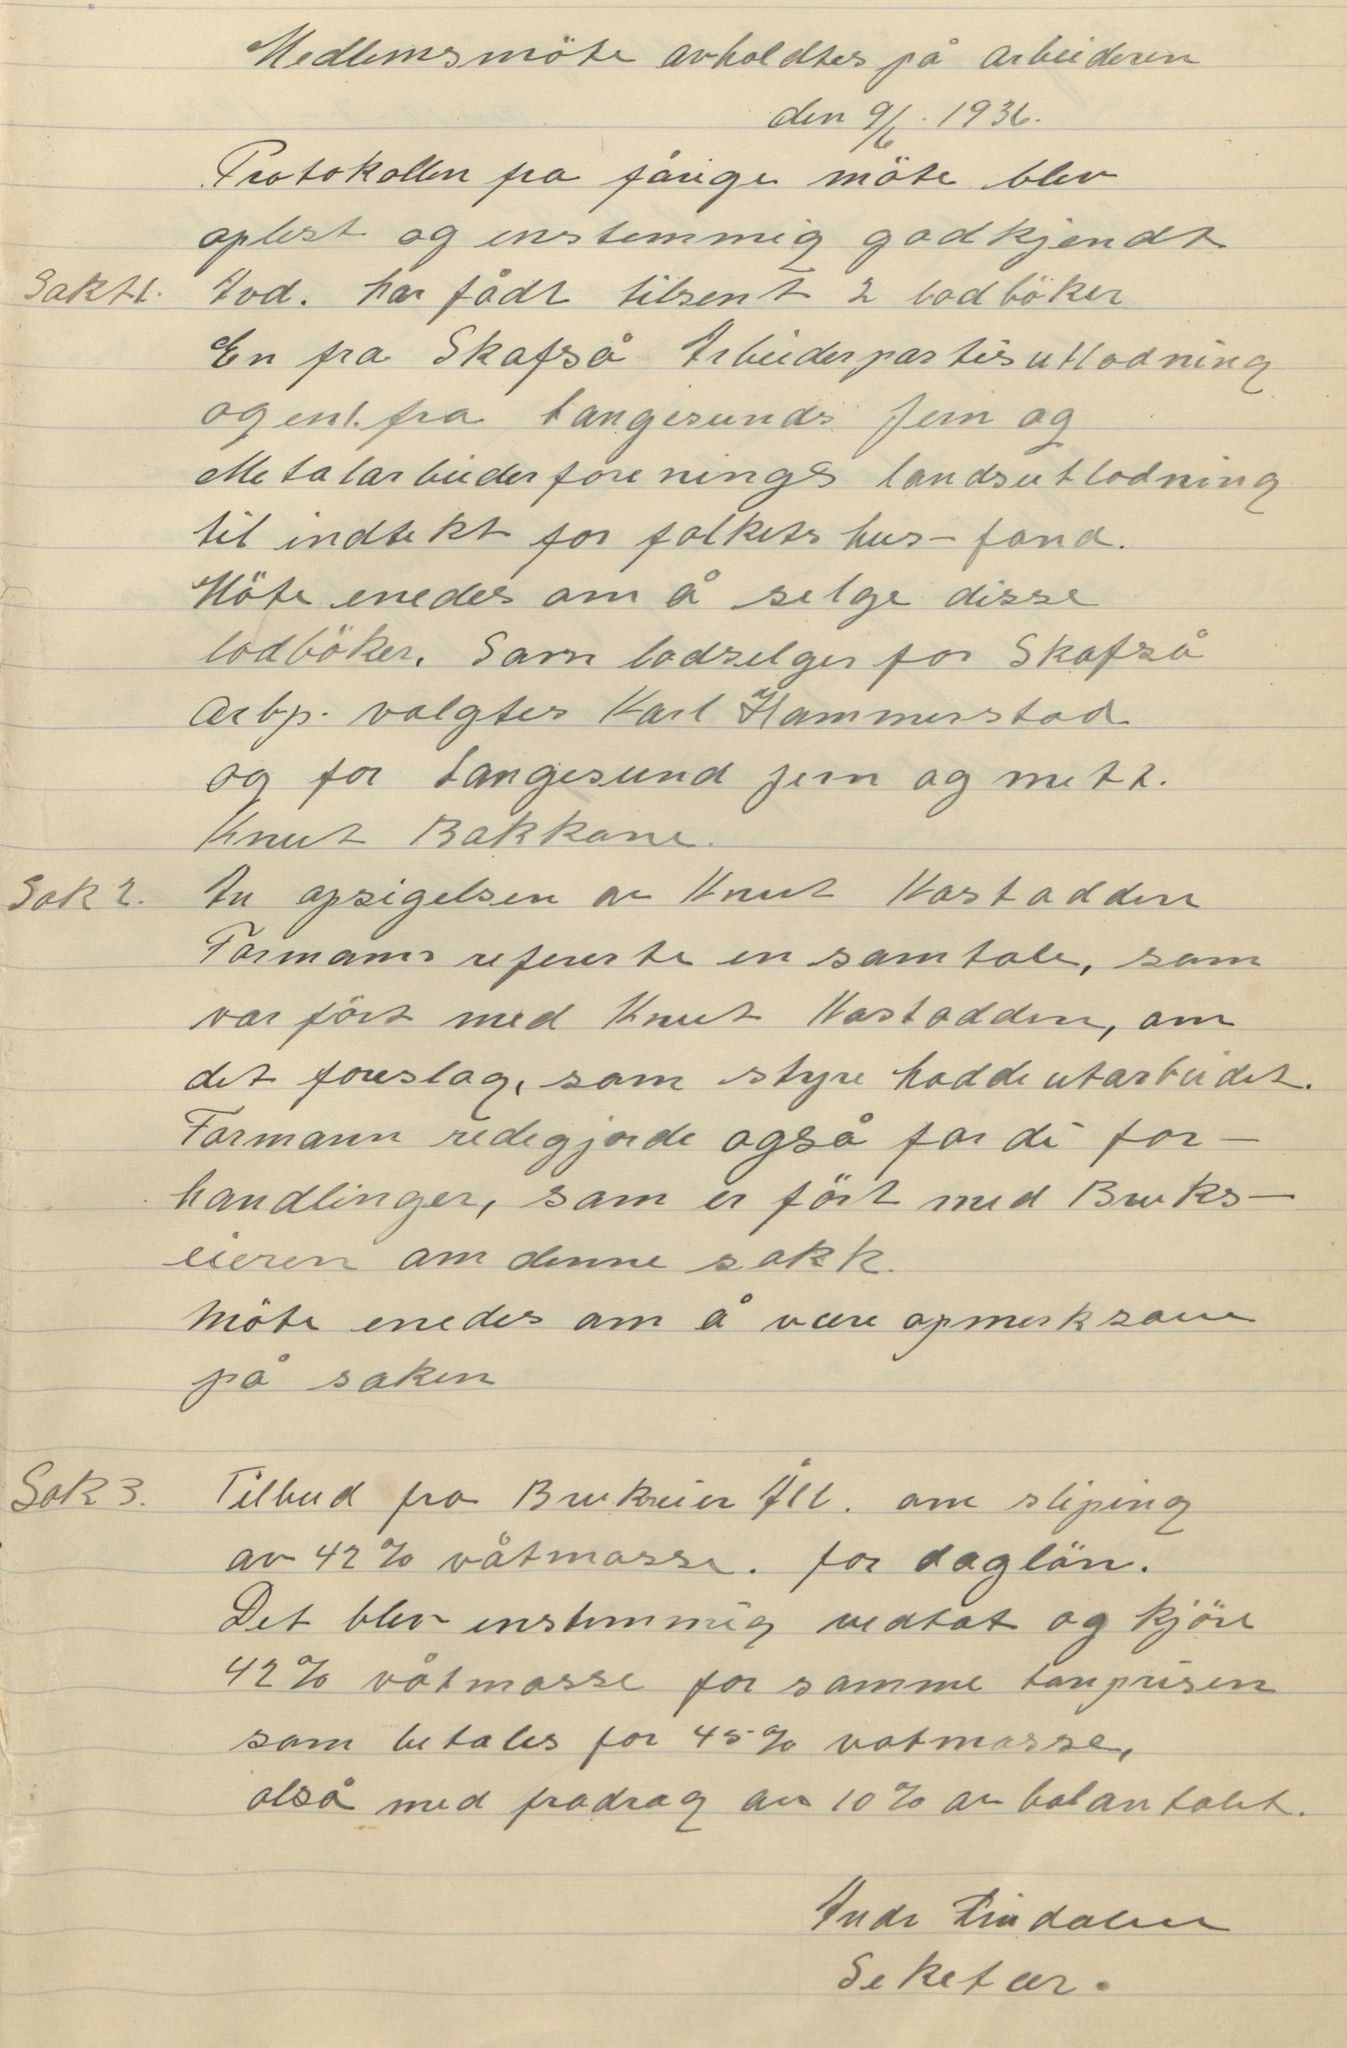 Medlemsmöte avholdtes på arbeideren
den 9/6. 1936.
Protokollen fra forige möte blev
oplest og enstemmig godkjendt
Sak 1. Avd. har fådt tilsent 2 lodböker
En fra Skafså Arbeiderpartis utlodning
og en fra Langesunds Jern og
Metalarbeiderforenings landsutlodning
til indtekt for folkets hus-fond.
Möte enedes om å selge disse
lodböker. Som lodselger for Skafså
Arbp. valgtes Karl Hammerstad
og for Langesund jern og mett.
Knut Bakkane.
Sak 2. An opsigelsen av Knut Kastodden
Formann refererte en samtale, som
var fört med Knut Kastodden, om
det foreslag, som styre hadde utarbeidet.
Formann redegjorde også for di for-
handlinger, som er fört med Bruks-
eieren om denne sakk.
Möte enedes om å være opmerksom
på saken
Sak 3. Tilbud fra Brukseier Åll. om sliping
av 42% våtmasse. for daglön.
Det blev enstemmig vedtat og kjöre
42% våtmasse for samme tonprisen
som betales for 45% votmasse,
også med fradrag av 10% av balantalet.
Lindalen
Seketær.